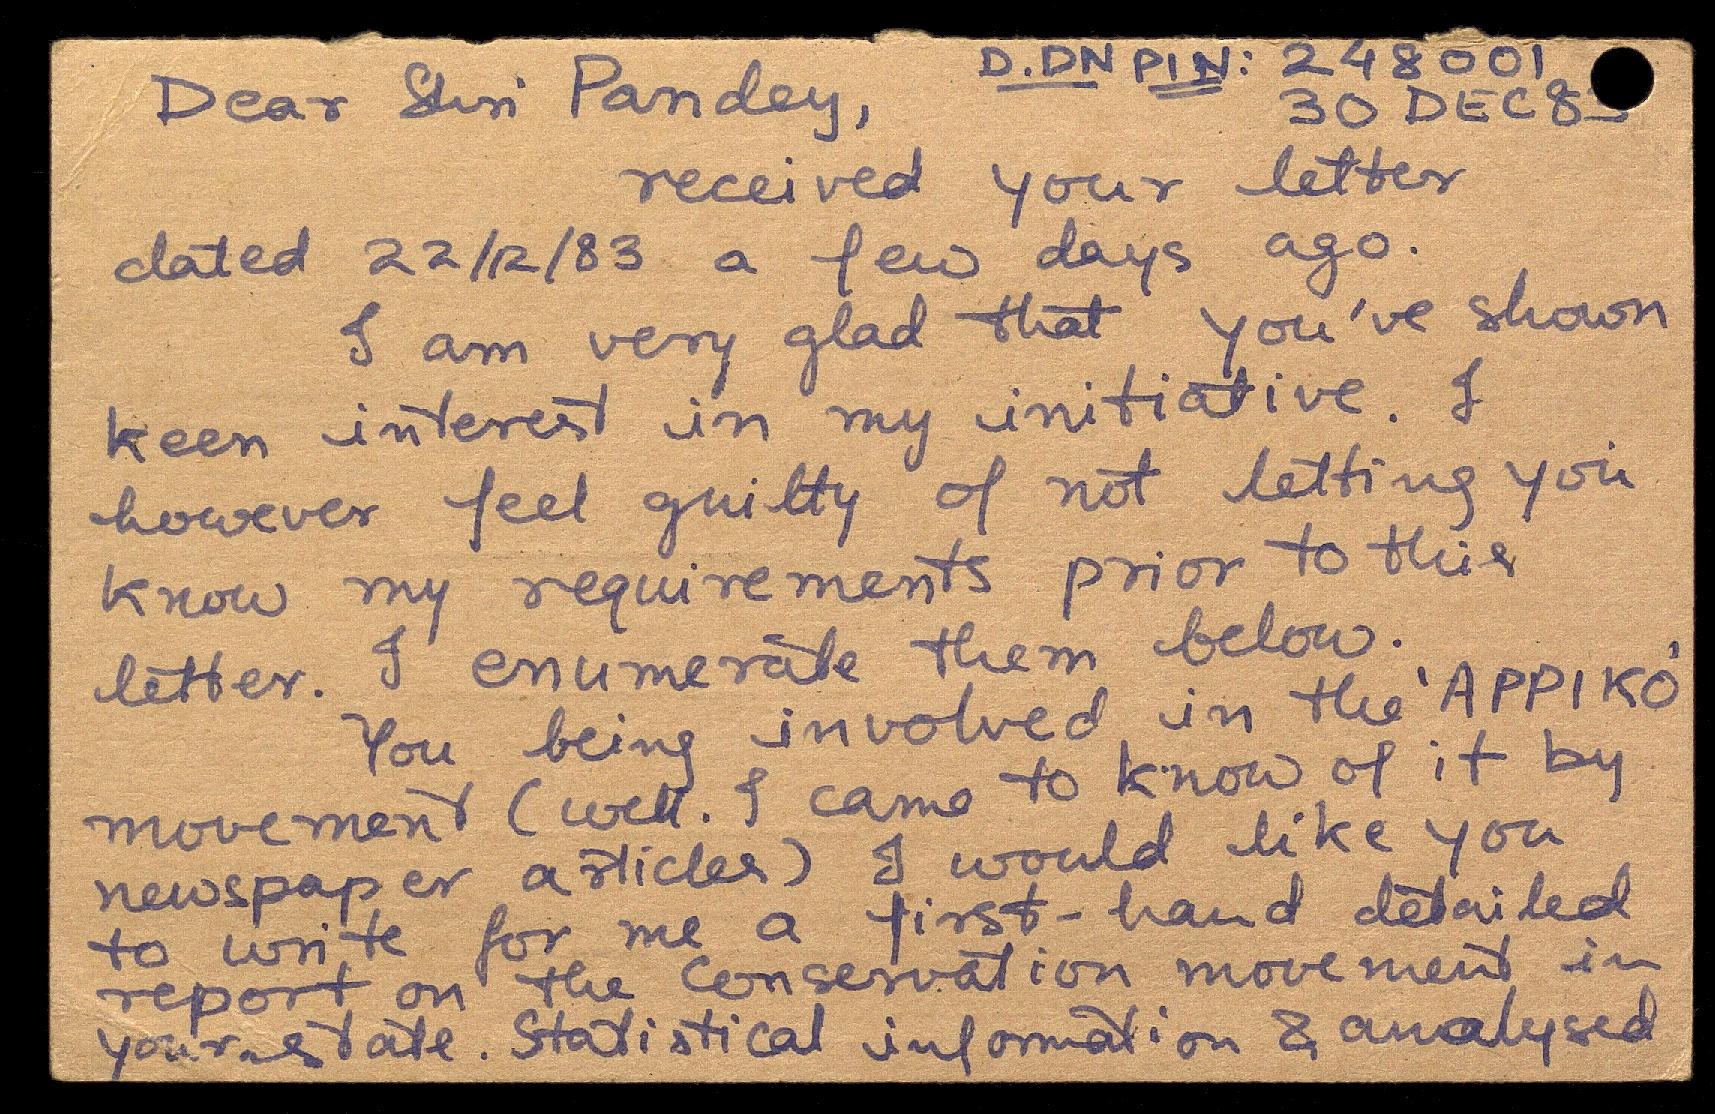 D.DN PIN: 248001
30 DEC 83
Dear Shri Pandey,
received your letter
dated 22/12/83 a few days ago.
I am very glad that you've shown
keen interest in my initiative. I
however feel guilty of not letting you
know my requirements prior to this
letter. I enumerate them below.
You being involved in the 'APPIKO'
movement (well. I came to know of it by
newspaper articles) I would like you
to write for me a first-hand detailed
report on the conservation movement in
your state. Statistical information & analysed